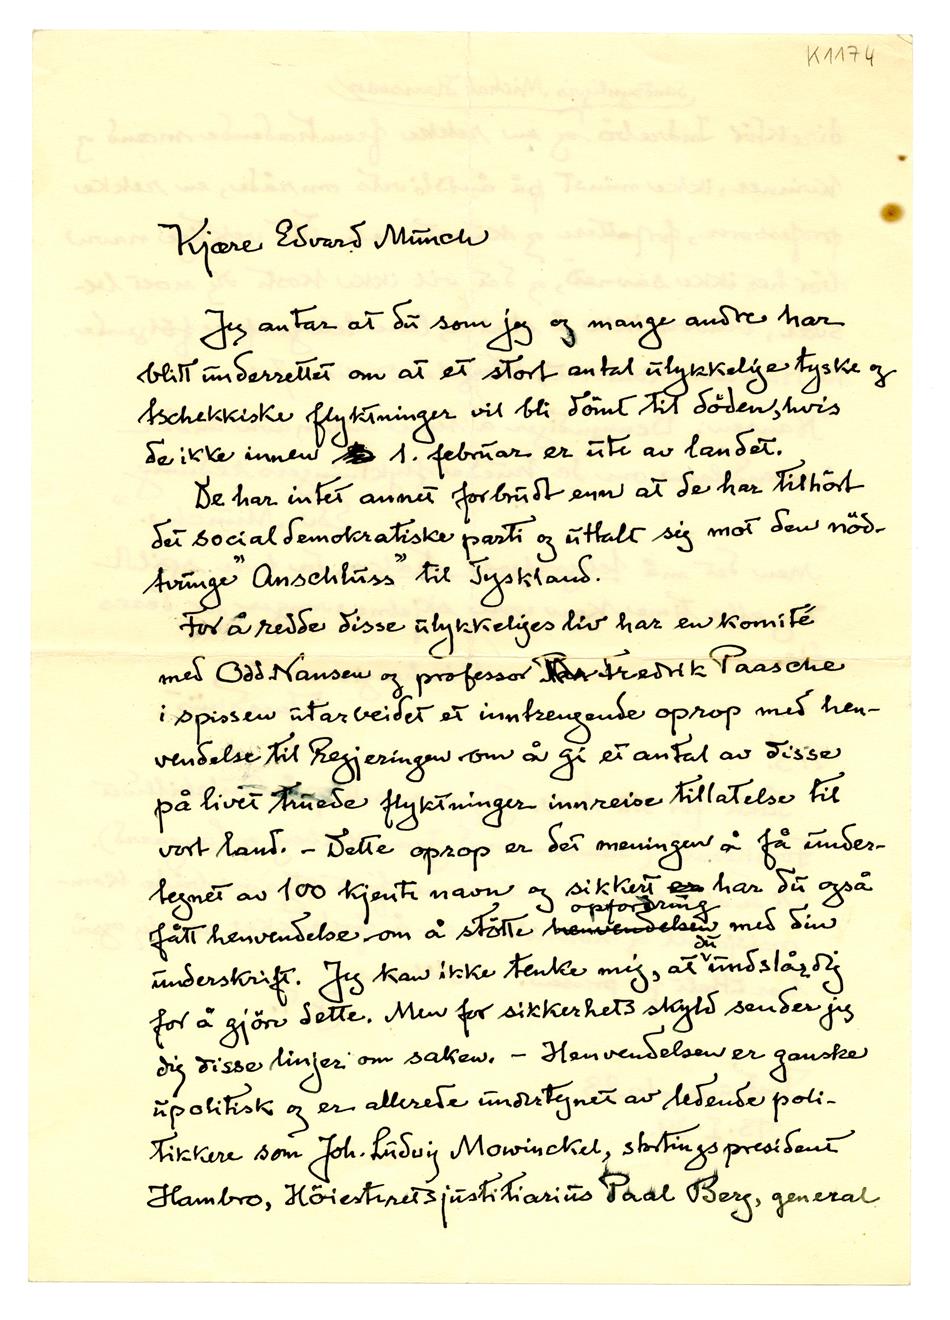 K1174
Kjære Edvard Münch
Jeg antar at dü som jeg og mange andre har
blitt ünderrettet om at et stort antal ülykkelige tyske og
tschekkiske flyktninger vil bli dömt til döden, hvis
de ikke innen 1. februar er üte av landet.
De har intet annet forbrüdt enn at de har tilhört
det socialdemokratiske parti og üttalt sig mot den nöd-
tvüngne "Anschlüss" til Tyskland.
For å redde disse ülykkeliges liv har en komité
med Odd Nansen og professor Fredrik Paasche
i spissen ütarbeidet et inntrengende oprop med hen-
vendelse til Regjeringen om å gi et antal av disse
på livet trüede flyktninger innreise tillatelse til
vort land. – Dette oprop er det meningen å få ünder-
tegnet av 100 kjente navn og sikkert er har dü også
opfordring
fått henvendelse om å stötte henvendelsen med din
dü
ünderskrift. Jeg kan ikke tenke mig, at ündslår dig
for å gjöre dette. Men for sikkerhets skyld sender jeg
dig disse linjer om saken. – Henvendelsen er ganske
üpolitisk og er allerede ündertegnet av ledende poli-
tikkere som Joh. Lüdvig Mowinckel, stortingspresident
Hambro, Höiesteretsjüstitiariüs Paal Berg, general